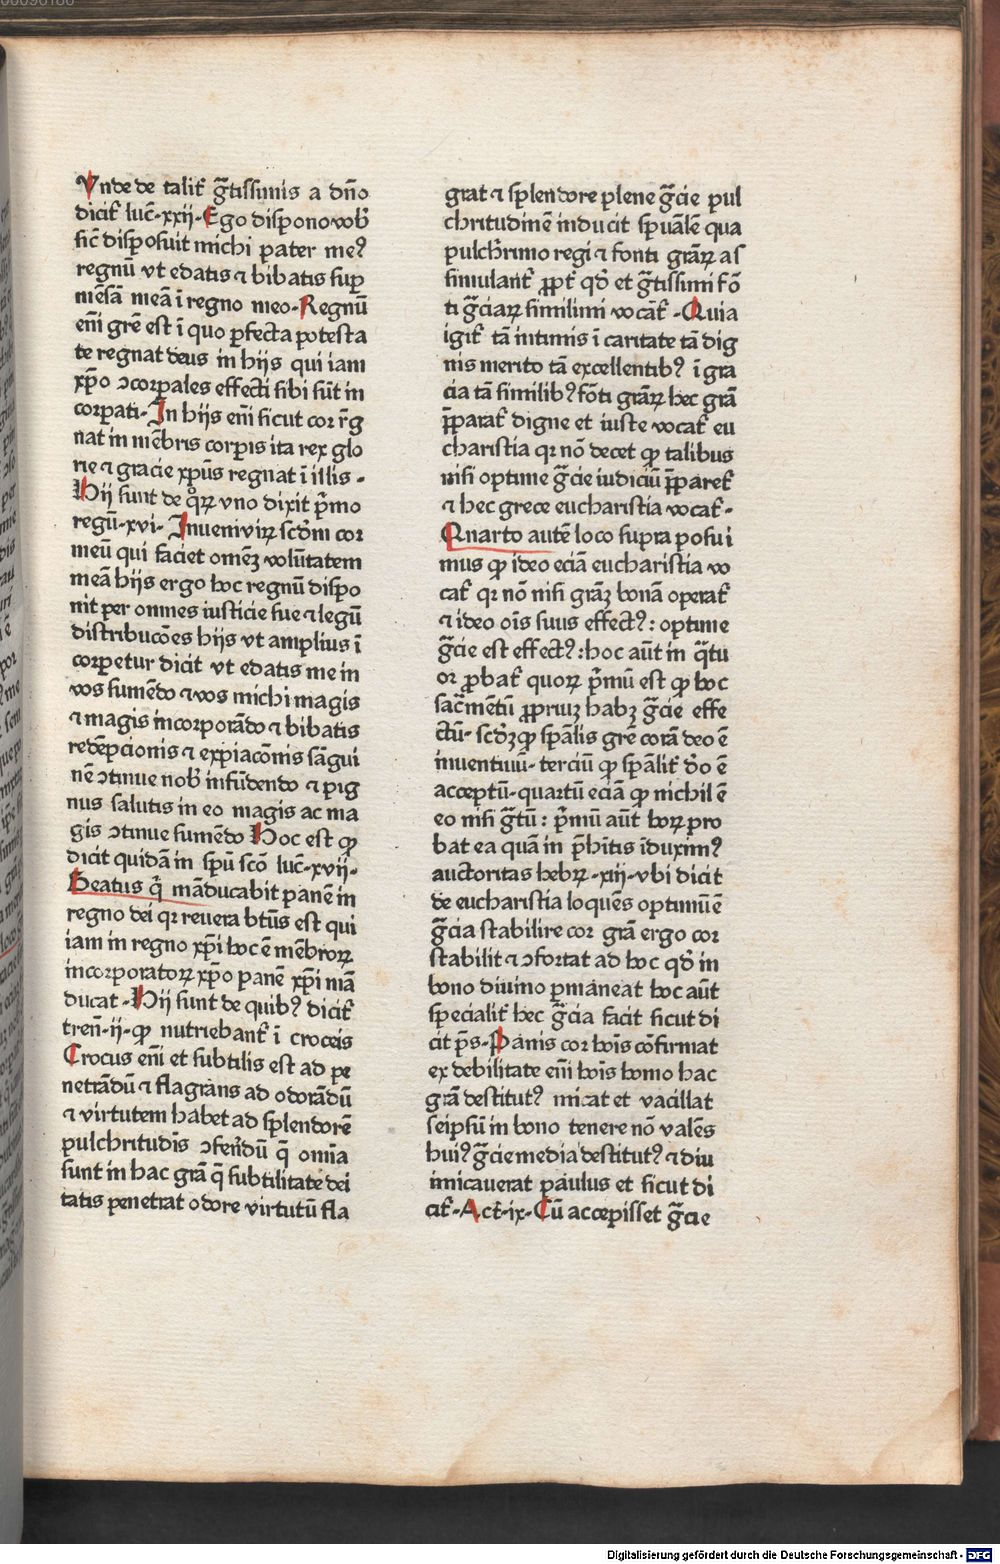 Vnde de talit̄ gr̄atissimis a dn̄o
dicit̄ luc̄·xxii·Ego dispono vob̄
sic̄ disposuit michi pater meꝰ
regnū vt edatis ⁊ bibatis sup̄
mēsā meā ī regno meo·Regnū
em̄ grē est ī quo ꝑfecta potesta
te regnat deus in hijs qui iam
xp̄o ↄcorpales effecti sibi sūt in
corpati·In hijs em̄ sicut cor r̄g
nat in mēbris corpis ita rex glo
rie ⁊ gracie xp̄us regnat ī illis·
Hij sunt de qͦꝝ vno dixit pͥmo
regū·xvi·Inueni virꝝ scd̄m cor
meū qui faciet omēꝫ volūtatem
meā hijs ergo hoc regnū dispo
nit per omnes iusticie sue ⁊ legū
distribucōes hijs vt amplius ī
corpetur dicit vt edatis me in
vos sumēdo ⁊ vos michi magis
⁊ magis incorporādo ⁊ bibatis
redēpcionis ⁊ expiacōnis sāgui
nē ↄtinue nob̄ infūdendo ⁊ pig
nus salutis in eo magis ac ma
gis ↄtinue sumēdo Hoc est ꝙ
dicit quidā in spū scō luc̄·xvij·
Beatus qͥ māducabit panē in
regno dei qꝛ reuera bt̄us est qui
iam in regno xp̄i hoc ē mēbroꝝ
incorporatoꝝ xp̄o panē xp̄i mā
ducat·Hij sunt de quibꝰ dicit̄
tren̄·ij·ꝙ nutriebant̄ ī croceis
Crocus em̄ et subtilis est ad pe
netrādū ⁊ flagrans ad odorādū
⁊ virtutem habet ad splendorē
pulchritudis̄ ↄferēdū q̄ omīa
sunt in hac grā q̄ subtilitate dei
tatis penetrat odore virtutū fla
grat ⁊ splendore plene gr̄cie pul
chritudinē inducit spūalē qua
pulchrimo regi ⁊ fonti grāꝝ as
simulant̄ ꝓpt̄ qd̓ et gr̄tissimi fō
ti gr̄ciaꝝ similimi vocāt̄·Quia
igit̄ tā intimis ī caritate tā dig
nis merito tā excellentibꝰ ī gra
cia tā similibꝰ fōti grāꝝ hec grā
p̄parat̄ digne et iuste vocat̄ eu
charistia qꝛ nō decet ꝙ talibus
nisi optime gr̄cie iudiciū p̄paret̄
⁊ hec grece eucharistia vocat̄·
Quarto autē loco supra posui
mus ꝙ ideo eciā eucharistia vo
cat̄ qꝛ nō nisi grāꝫ bonā operat̄
⁊ ideo ois̄ suus effectꝰ: optime
gr̄cie est effectꝰ: hoc aūt in q̄tu
or ꝓbat̄ quoꝝ pͥmū est ꝙ hoc
sac̄mētū ꝓpriuꝫ habꝫ gr̄cie effe
ctū·scd̓ꝫ ꝙ spāalis gr̄e corā deo ē
inuentiuū·terciū ꝙ spāalit̄ d̓o ē
acceptū·quartū eciā ꝙ nichil ē
eo nisi gr̄tū: pͥmū aūt hoꝝ pro
bat ea quā in p̄hītis īduximꝰ
auctoritas hebꝝ·xiij·vbi dicit
de eucharistia loquēs optimū ē
gr̄cia stabilire cor grā ergo cor
stabilit ⁊ ↄfortat ad hoc qd̓ in
bono diuino ꝑmaneat hoc aūt
specialit̄ hec gr̄cia facit sicut di
cit p̄s·Panis cor hois̄ cōfirmat
ex debilitate em̄ hois̄ homo hac
grā destitutꝰ micat et vacillat
seipsū in bono tenere nō valēs
huiꝰ gr̄cie media destitutꝰ ⁊ diu
imicauerat paulus et sicut di
cit̄·Act̄·ix·Cū accepisset gr̄cie